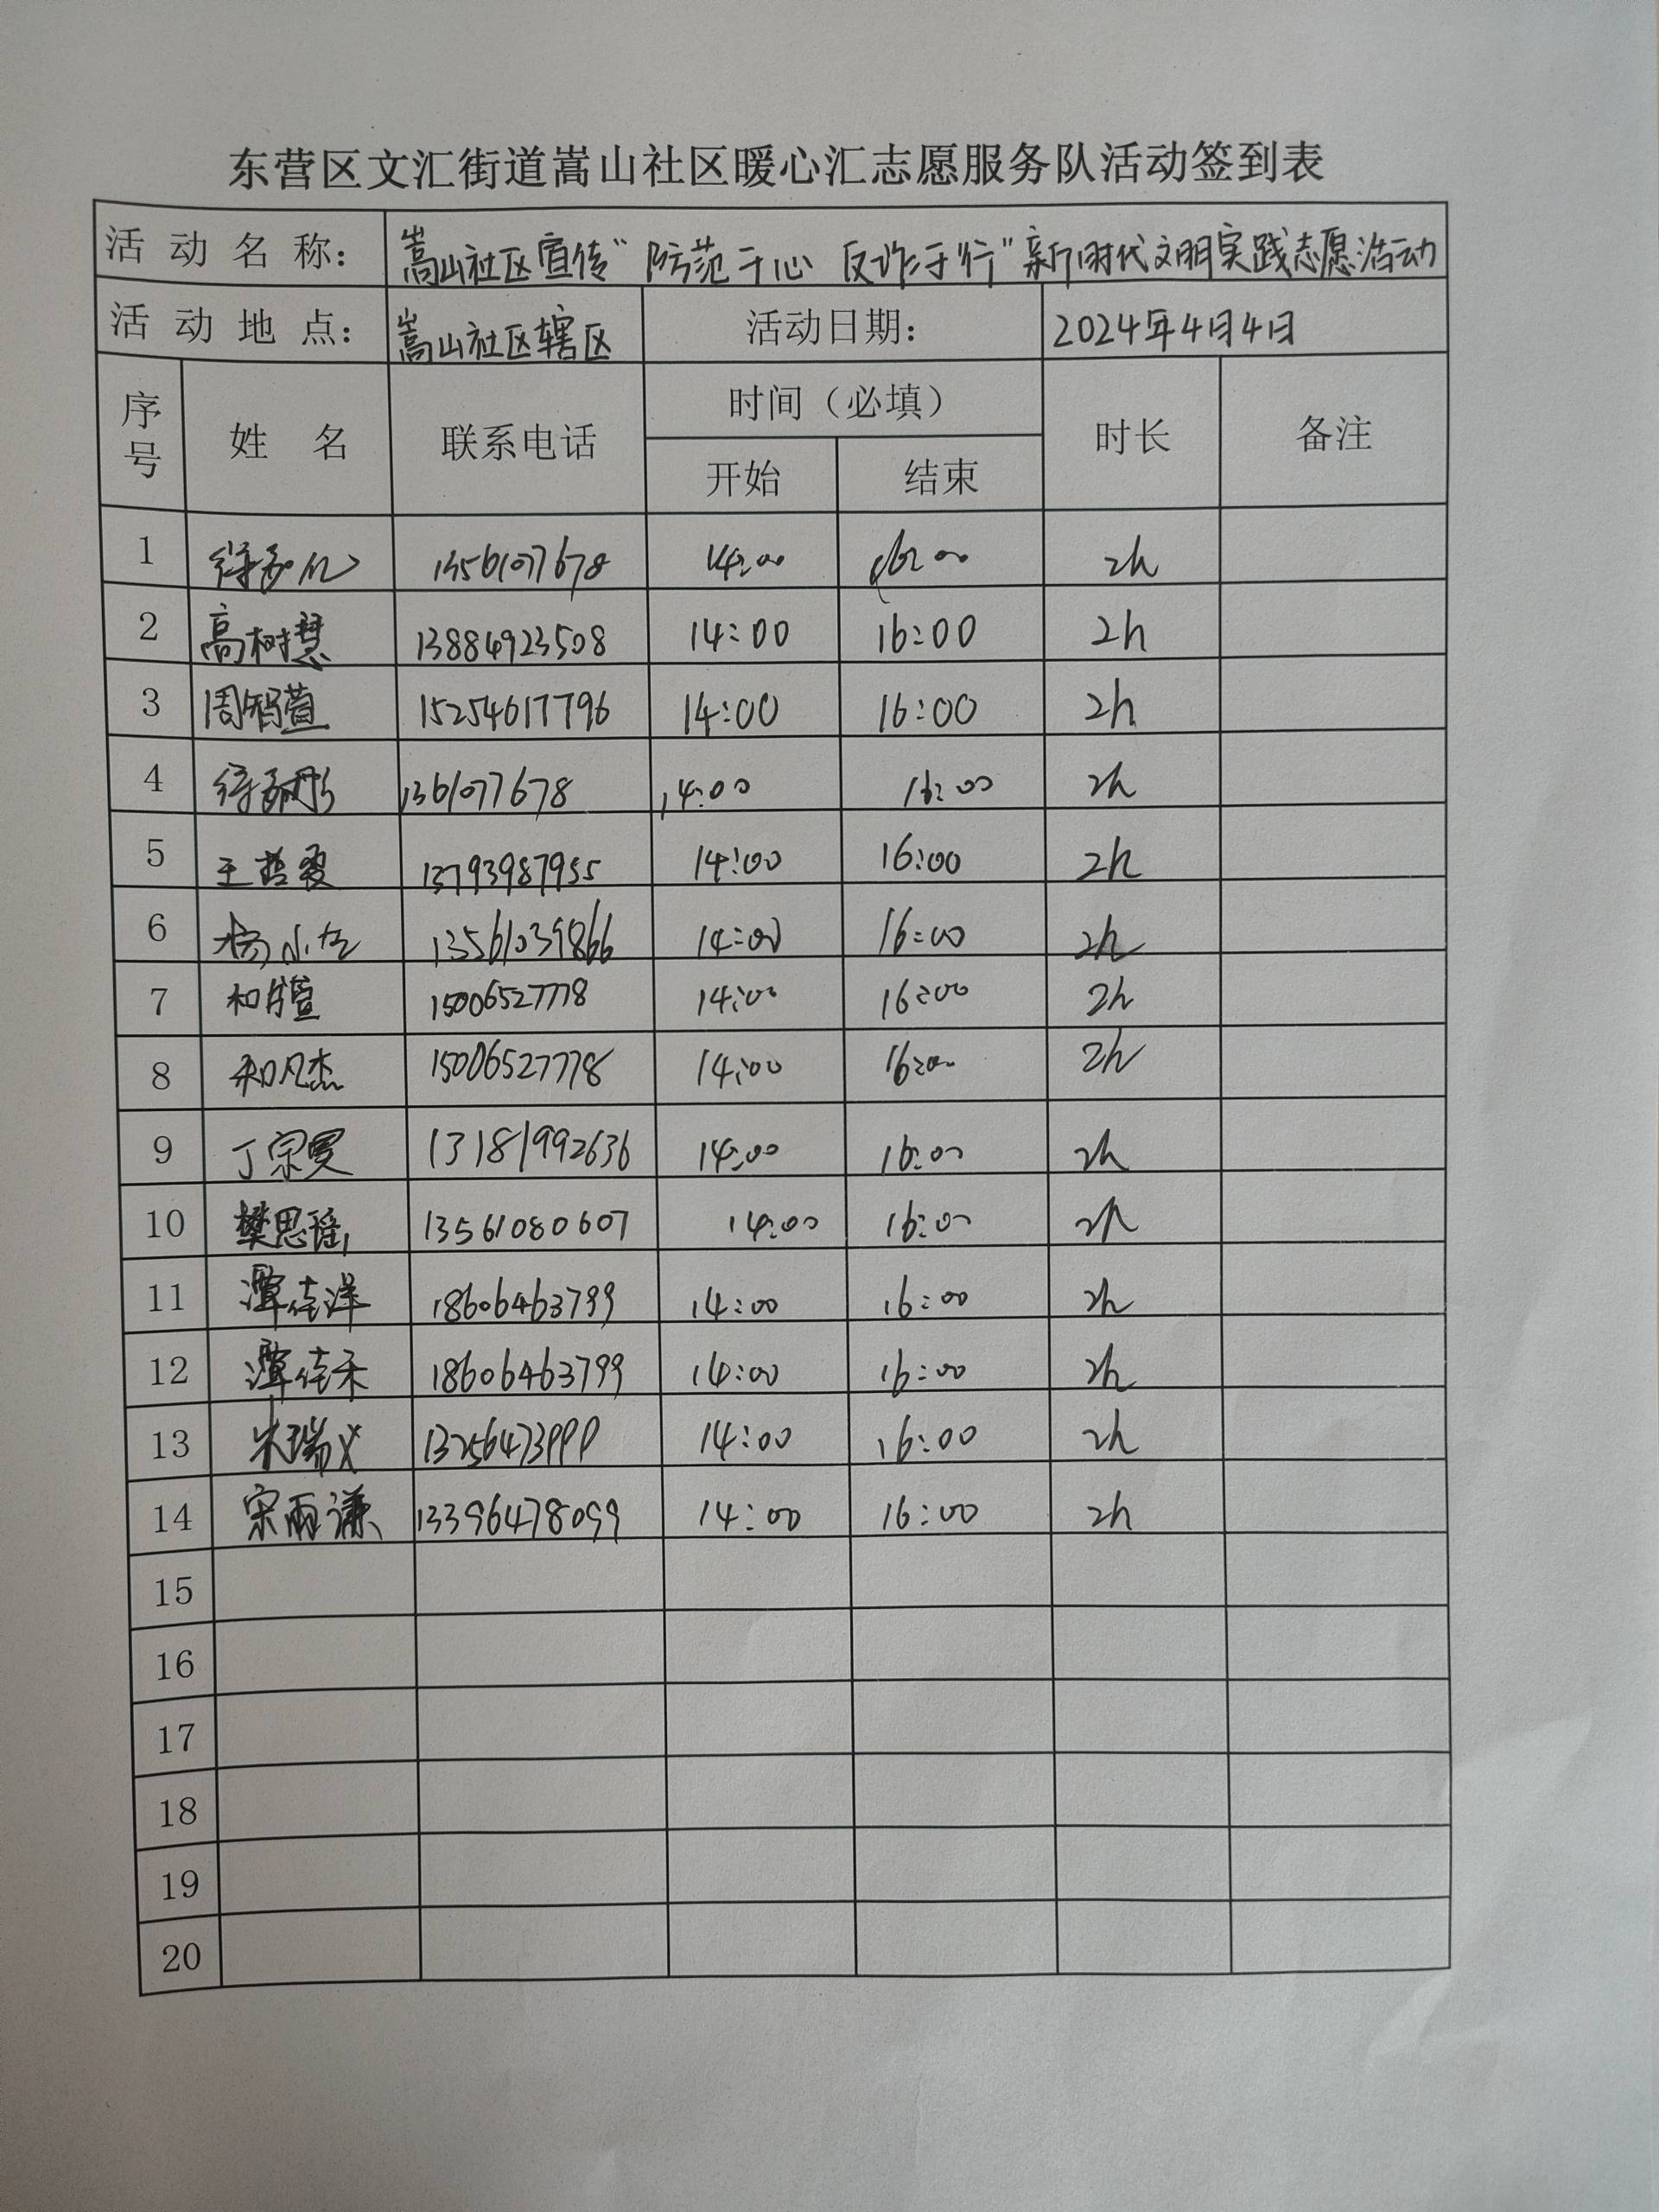 东营区文汇街道嵩山社区暖心汇志愿服务队活动签到表
活动名称: 嵩山社区宣传“防范于心 反诈于行”新时代文明实践志愿活动
活动地点: 嵩山社区辖区 活动日期: 2024年4月4日
序号 姓名 联系电话 时间（必填） 时长 备注
开始 结束
1 13561077678 14:00 16:00 2h
2 高树慧 13884923508 14:00 16:00 2h
3 周智萱 15254617796 14:00 16:00 2h
4 1361077678 14:00 16:00 2h
5 13793987955 14:00 16:00 2h
6 13561039866 14:00 16:00 2h
7 15006527778 14:00 16:00 2h
8 和凡杰 15006527778 14:00 16:00 2h
9 13181992636 14:00 16:00 2h
10 樊思瑶 13561080607 14:00 16:00 2h
11 潭佳洋 18606463799 14:00 16:00 2h
12 潭佳禾 18606463799 14:00 16:00 2h
13 14:00 16:00 2h
14 宋雨谦 13396478099 14:00 16:00 2h
15
16
17
18
19
20